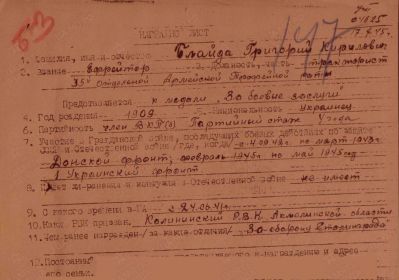 БЗ
147
17.9.45г.
НАГРАДНОЙ ЛИСТ
1. Фамилия, имя и отчество Блайда Григорий Кирилович
2. Звание Ефрейтор 3. Должность, часть тракторист
35 отдельной Армейской Трофейной роты
Представляется к медали „За боевые заслуги"
4. Год рождения 1909 5. Национальность Украинец
6. Партийность член ВКП(б) Партийный стаж 4 года
7. Участие в Гражданской войне, последующих боевых действиях по защите
СССР и Отечественной войне /где, когда/ по март 1943г.
Донской фронт, февраль 1945г по май 1945 год
1 Украинский фронт
8. Имеет ли ранения и контузии в Отечественной войне не имеет
9. С какого времени в КА 24.06.41г.
10. Каким РВК призван Калининский Р.В.К. Акмолинской области
11. Чем ранее награжден /за какие отличия/ За оборону Сталинграда
12. Постоянный адрес
его семьи.